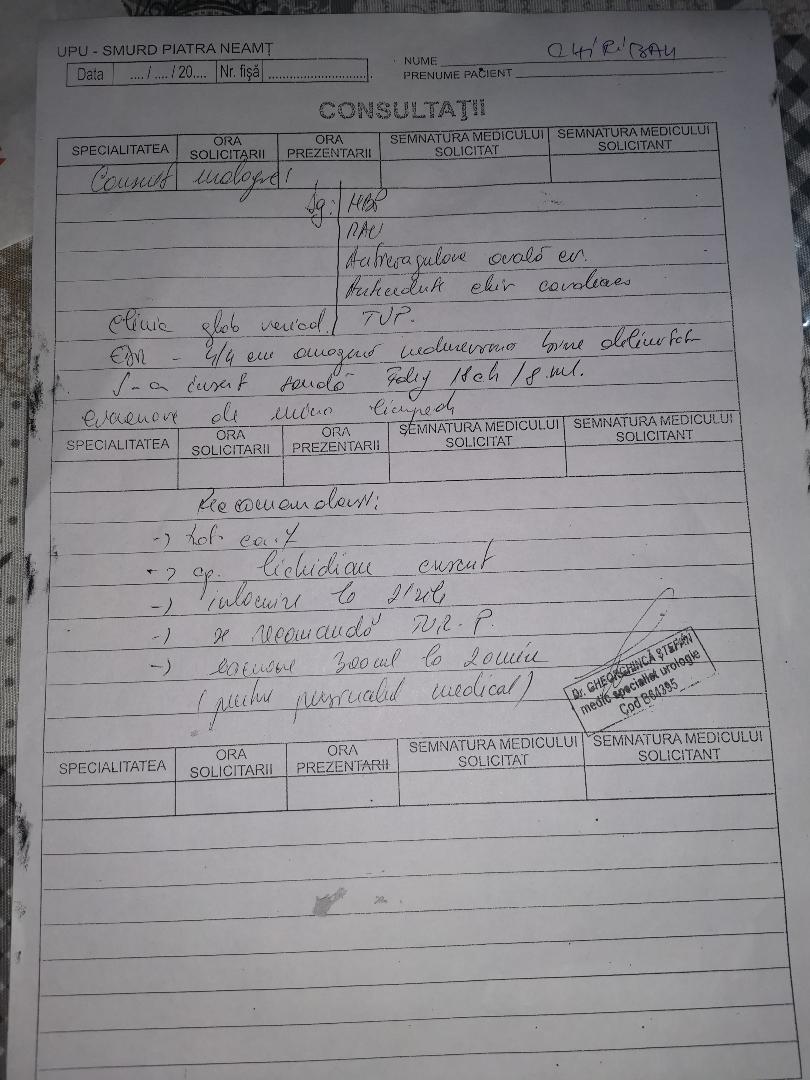 UPU - SMURD PIATRA NEAMȚ
Data ..../..../20.... Nr. fișă
NUME CHIRIBAU
PRENUME PACIENT
CONSULTAŢII
SPECIALITATEA ORA SOLICITARII ORA PREZENTARII SEMNATURA MEDICULUI SOLICITAT SEMNATURA MEDICULUI SOLICITANT
Consult urologie!
Dg: HBP
RAU
Anticoagulare orală cr.
Antecedente chir cardiace
Clinic glob vezical. TVP.
4/4 cm omogenă nedureroasa bine delimitata
S-a inserat sondă Foley 18ch /8 ml.
evacuare de urina limpede
SPECIALITATEA ORA SOLICITARII ORA PREZENTARII SEMNATURA MEDICULUI SOLICITAT SEMNATURA MEDICULUI SOLICITANT
Recomandari:
->
-> ap. lichidian crescut
-> inlocuire la 21 zile
-> se recomandă TUR-P.
-> evacuare 300ml la 20 min
(pentru personalul medical)
Dr. GHEORGHINCĂ ȘTEFAN
medic specialist urologie
Cod B64395
SPECIALITATEA ORA SOLICITARII ORA PREZENTARII SEMNATURA MEDICULUI SOLICITAT SEMNATURA MEDICULUI SOLICITANT